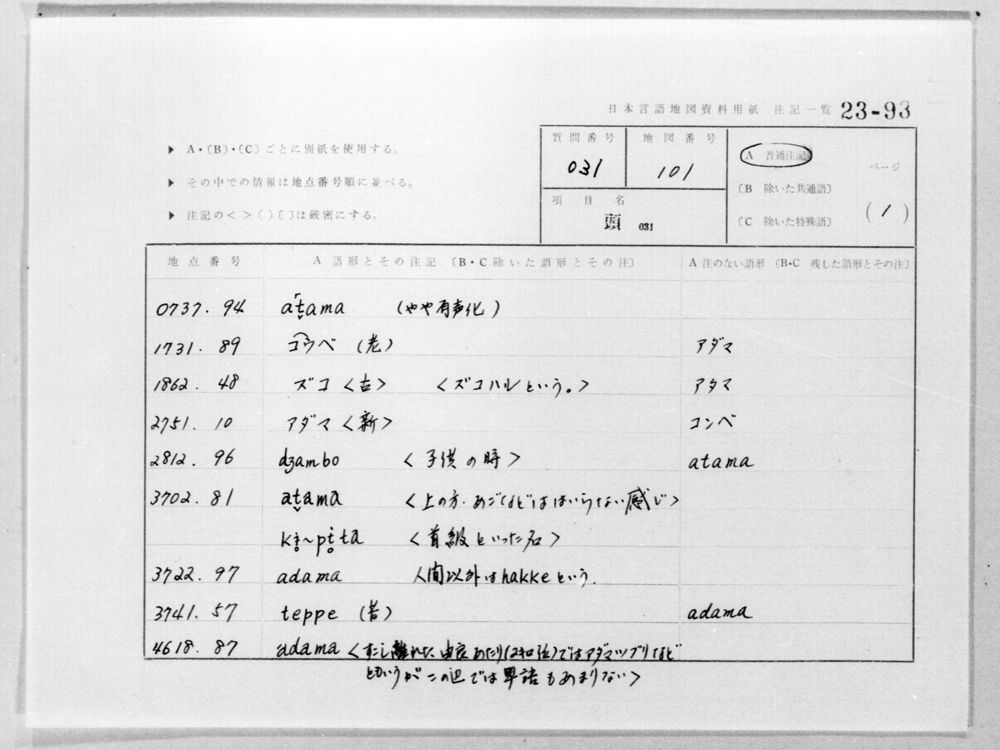 日本言語地図資料用紙 注記一覧 23-93
▶ A・〔B〕・〔C〕ごとに別紙を使用する。
▶ その中での情報は地点番号順に並べる。
▶ 注記の< >( )〔 〕は厳密にする。
質問番号 地図番号
031 101
項目名
頭 031
A 普通注記
〔B 除いた共通語〕
〔C 除いた特殊語〕
ページ
(1)
地点番号 A 語形とその注記 〔B・C 除いた語形とその注〕 A 注のない語形 〔B・C 残した語形とその注〕
0737. 94 at̬ama (やや有声化)
1731. 89 コウベ (老) アダマ
1862. 48 ズコ <古> <ズコハルという。> アタマ
2751. 10 アダマ <新> コンベ
2812. 96 dʒambo <子供の時> atama
3702. 81 at̬ama <上の方. あごなどははいらない感じ>
<首級といった名>
3722. 97 adama 人間以外はhakkeという.
3741. 57 teppe (昔) adama
4618. 87 adama <すこし離れた、由良あたり(2キロ位)ではアダマツブリなど
というがこの辺では単語もあまりない>